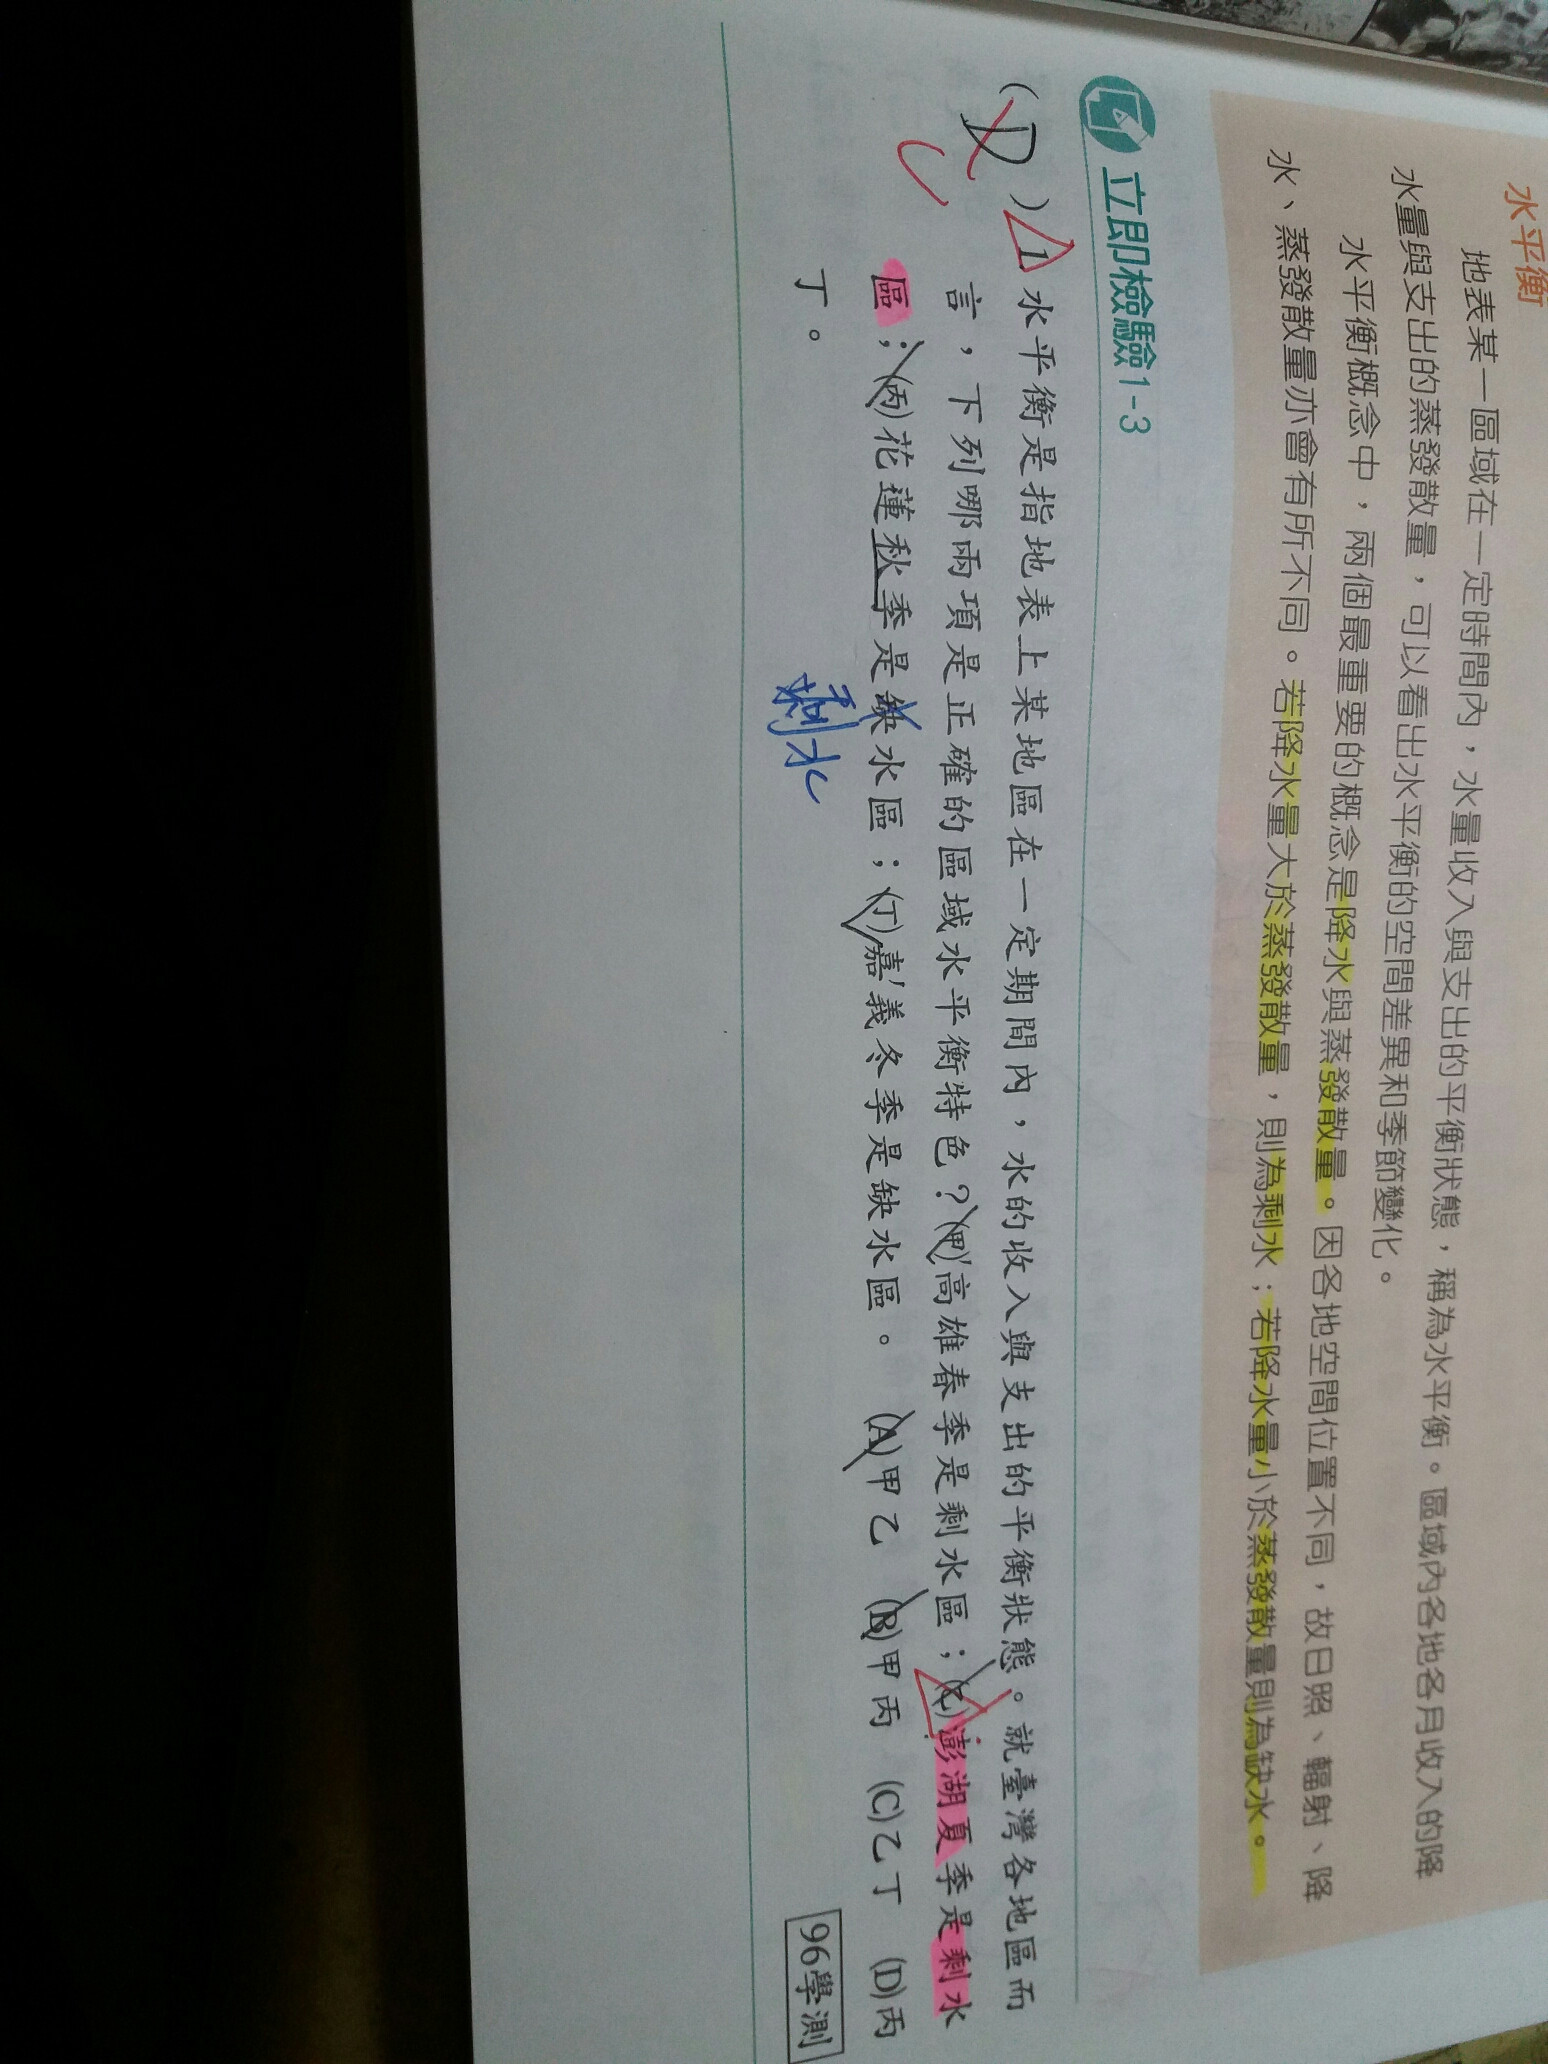 水平衡
地表某一區域在一定時間內，水量收入與支出的平衡狀態，稱為水平衡。區域內各地各月收入的降
水量與支出的蒸發散量，可以看出水平衡的空間差異和季節變化。
水平衡概念中，兩個最重要的概念是降水與蒸發散量。因各地空間位置不同，故日照、輻射、降
水、蒸發散量亦會有所不同。若降水量大於蒸發散量，則為剩水；若降水量小於蒸發散量則為缺水。
立即檢驗1-3
( D ) 1. 水平衡是指地表上某地區在一定期間內，水的收入與支出的平衡狀態。就臺灣各地區而
C
言，下列哪兩項是正確的區域水平衡特色？(甲)高雄春季是剩水區；(乙)澎湖夏季是剩水
區；(丙)花蓮秋季是缺水區；(丁)嘉義冬季是缺水區。 (A)甲乙 (B)甲丙 (C)乙丁 (D)丙
剩水
丁。
96學測